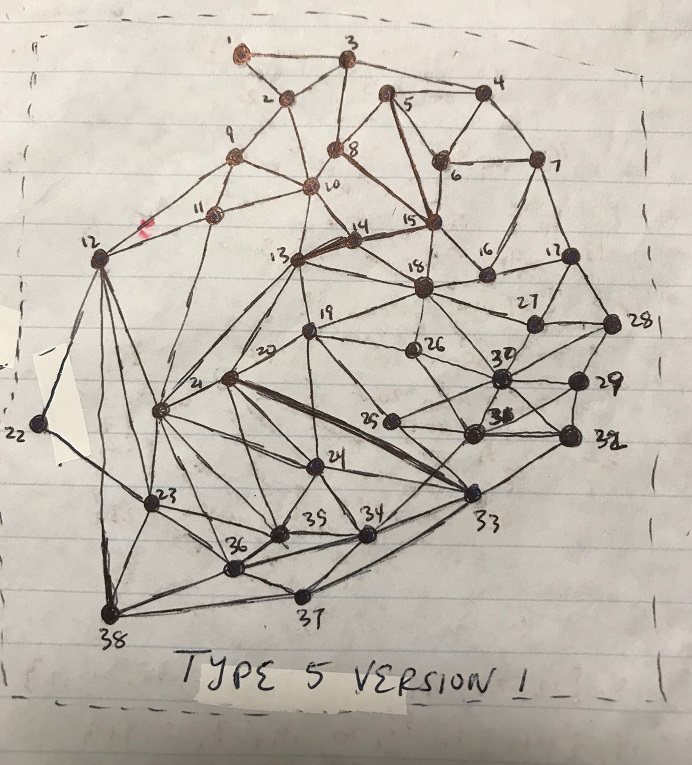 1
3
2
5
4
9
8
6
7
10
11
14
15
12
13
16
17
18
19
27
28
20
26
30
21
29
25
32
22
24
23
33
35
34
36
37
38
TYPE 5 VERSION 1